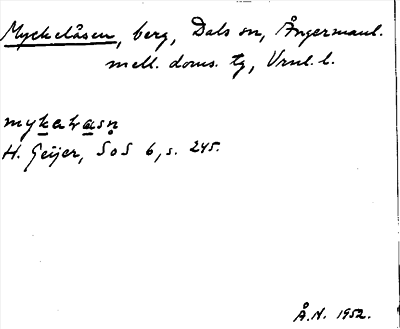 Myckelåsen, berg, Dals sn, Ångermanl.
mell. doms. tg, Vrnl. l.
mykeɫasn̥
H. Geijer, SoS 6, s. 245.
Å.N. 1952.